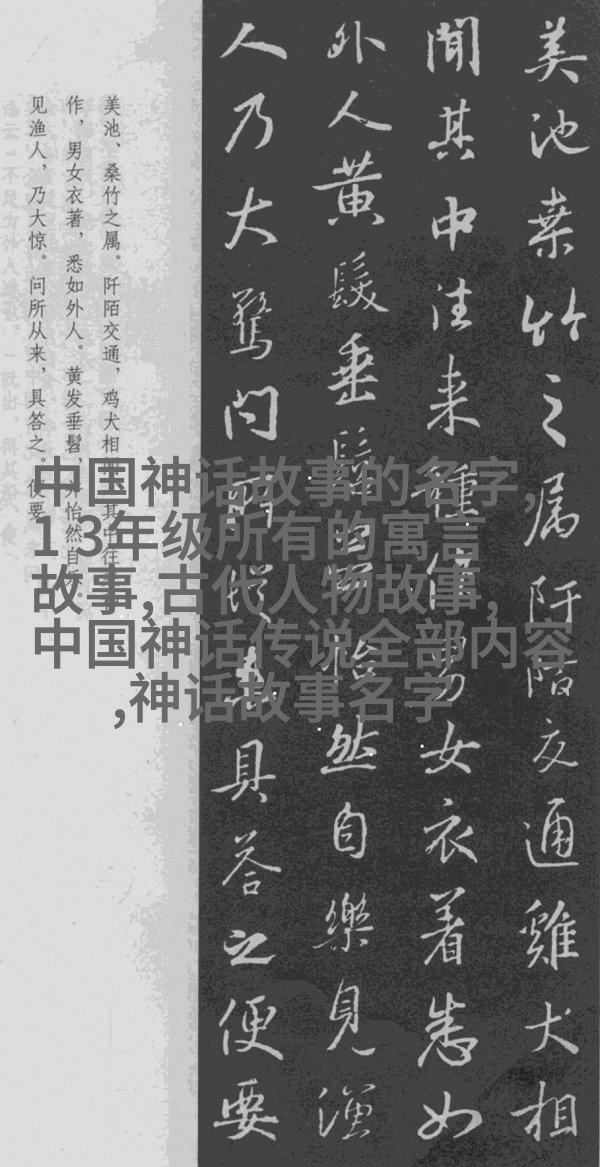 美池桒竹之属阡陌交通雞犬相
聞其中往来種作男女衣着悉如
外人黄髮垂髫並怡然自樂見漁
人乃大驚问所從来具答之便要
美池、桑竹之属。阡陌交通，鸡犬相 其中往
作，男女衣著，悉如外人。黄发垂髫，并怡然自
见渔人，乃大惊。问所从来，具答之。便要
中国神话故事的名字,
1 3年级所有的寓言
故事,古代人物故事,
中国神话传说全部内容
,神话故事名字